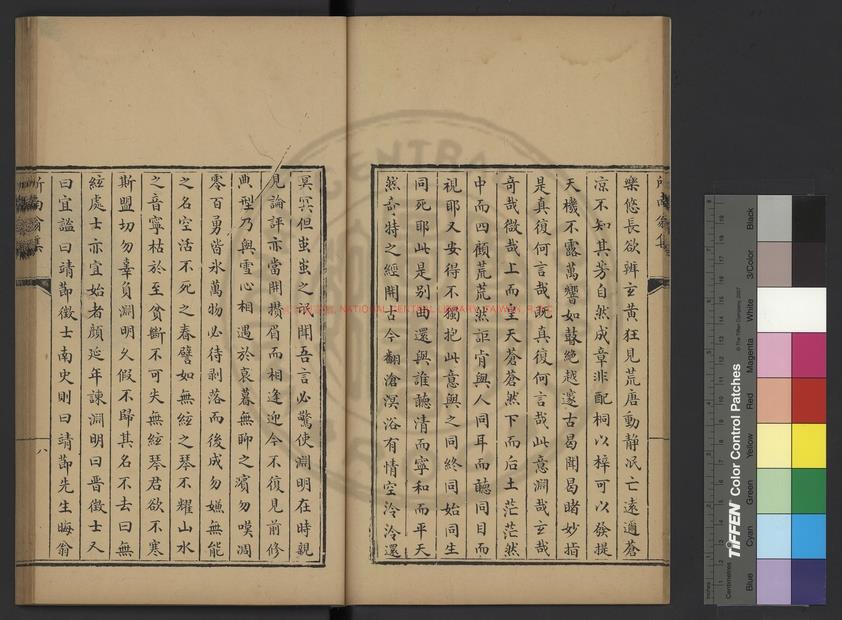 樂悠長欲辨玄黄狂見荒唐動静泯亡遠邇蒼
凉不知其芳自然成章非配桐以梓可以發提
天機不露萬響如鼓絶越邃古曷聞曷睹妙指
是真復何言哉既真復何言哉此意淵哉玄哉
奇哉微哉上而皇天蒼蒼然下而后土茫茫然
中而四顧荒荒然詎肯與人同耳而聽同目而
視耶又安得不獨抱此意與之同終同始同生
同死耶此是别調還與誰聽清而寧和而平天
然奇特之經開古今翻滄溟浴有情空泠泠還
冥冥但蚩蚩之氓聞吾言必驚使淵明在時親
見論評亦當開攢眉而相逢迎今不復見前修
典型乃與雪心相遇於衰暮無聊之濱勿嘆凋
零百勇皆氷萬物必待剥落而後成勿嫌無能
之名空活不死之春譬如無絃之琴不耀山水
之音寧枯於至貧斷不可失無絃琴君欲不寒
斯盟切勿辜負淵明久假不歸其名不去曰無
絃處士亦宜始者顔延年誄淵明曰晋徵士又
曰宜謚曰靖節徵士南史則曰靖節先生晦翁
所南翁集
八
NATIONAL CENTRAL LIBRARY, TAIWAN, R.O.C.
TIFFEN Color Control Patches
© The Tiffen Company, 2007
Centimetres
Inches
Blue
Cyan
Green
Yellow
Red
Magenta
3/Color
Black